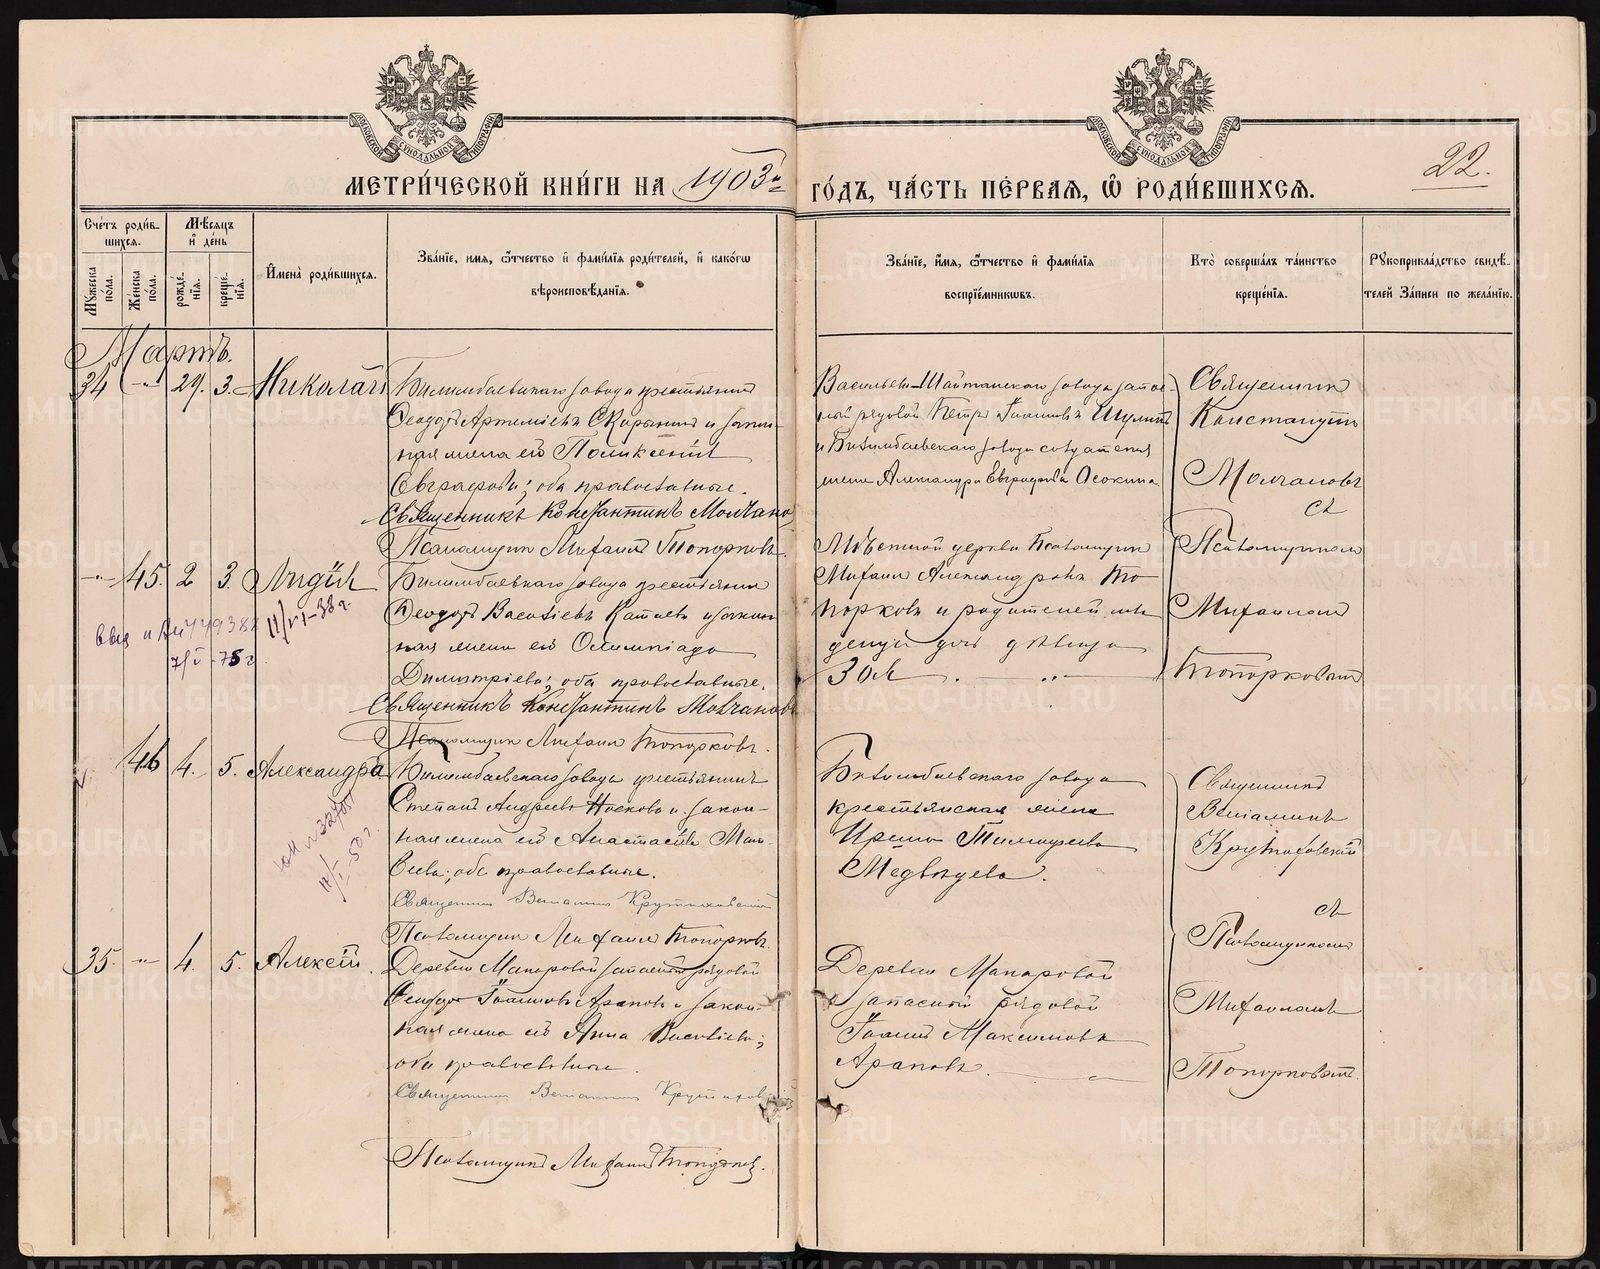 МОСКОВСКОЙ СѴНОДАЛЬНОЙ ТИПОГРАФІИ
МОСКОВСКОЙ СѴНОДАЛЬНОЙ ТИПОГРАФІИ
МЕТРИ́ЧЕСКОЙ КНИ́ГИ НА 1903й
ГО́ДЪ, ЧА́СТЬ ПЕ́РВАЯ, Ѡ҆ РОДИ́ВШИХСЯ.
22.
Сче́тъ роди́в-
шихся.
Мѣ́сяцъ
и҆ де́нь
Му́жеска по́ла.
Же́нска по́ла.
рожде́-
нїя.
креще́-
нїя.
И҆мена̀ роди́вшихся.
Зва́нїе, имя, ѻ҆́тчество и҆ фами́лїя роди́телей, и҆ како́гѡ
вѣроисповѣ́данїя.
Зва́нїе, и҆́мя, ѻ҆́тчество и҆ фами́лїя
воспрїе́мникѡвъ.
Кто̀ соверша́лъ та́инство
креще́нїя.
Рꙋкоприкла́дство свидѣ́-
телей За́писи по жела́нїю.
Мартъ.
34 -"- 29. 3. Николай
Билимбаевскаго завода крестьянинъ
Ѳеодоръ Артемьевъ Скорынинъ и закон-
ная жена его Поликсенія
Евграфова; оба православные.
Священникъ Константинъ Молчановъ
Псаломщикъ Михаилъ Топорковъ.
Васильево-Шайтанскаго завода запас-
ный рядовой Петръ Іоанновъ
и Билимбаевскаго завода солдатская
жена Александра Евграфова Осокина
Священникъ
Константинъ
Молчановъ
съ
-"- 45. 2 3. Лидія
11/VI-38 г.
7/V-75 г
Билимбаевскаго завода крестьянинъ
Ѳеодоръ Васильевъ Катаевъ и закон-
ная жена его Олимпіада
Димитріева; оба православные.
Священникъ Константинъ Молчановъ
Псаломщикъ Михаилъ Топорковъ.
Мѣстной церкви Псаломщикъ
Михаилъ Александровъ То-
порковъ и родителей мла-
денца дочь дѣвица
Зоя
Псаломщикомъ
Михаиломъ
Топорковымъ
46 4. 5. Александра
Билимбаевскаго завода крестьянинъ
Степанъ Андреевъ Носковъ и закон-
ная жена его Анастасія Мат-
веева; оба православные.
Священникъ Веніаминъ
Псаломщикъ Михаилъ Топорковъ.
Билимбаевскаго завода
крестьянская жена
Ирина Тимофеева
Медвѣдева.
Священникъ
Веніаминъ
съ
35. -"- 4. 5. Алексѣй.
Деревни Макаровой запасной рядовой
Ѳеодоръ Іоанновъ Араповъ и закон-
ная жена его Анна Васильева;
оба православные
Священникъ Веніаминъ
Псаломщикъ Михаилъ Топорковъ.
Деревни Макаровой
запасный рядовой
Іоаннъ Максимовъ
Араповъ.
Псаломщикомъ
Михаиломъ
Топорковымъ.
METRIKI.GASO-URAL.RU